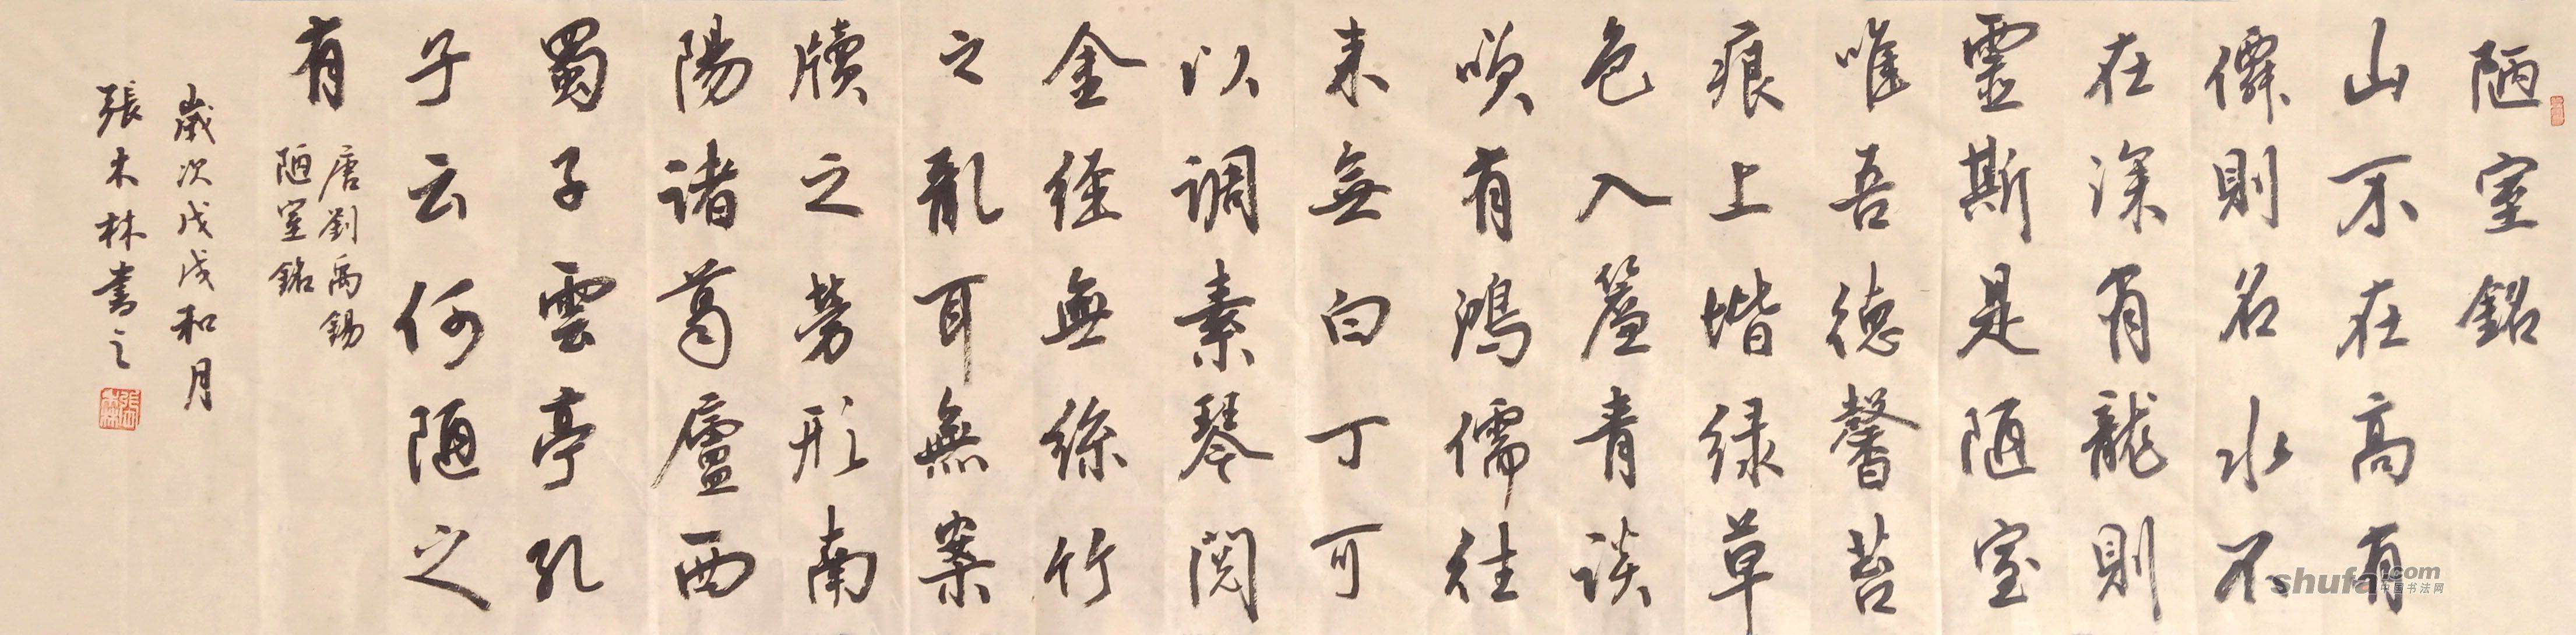 陋室銘
山不在高有
僊則名水不
在深有龍則
靈斯是陋室
唯吾德馨苔
痕上堦緑草
色入簾青談
咲有鴻儒往
来無白丁可
以調素琴閲
金經無絲竹
之亂耳無案
牘之勞形南
陽諸葛廬西
蜀子雲亭孔
子云何陋之
有
唐劉禹錫
陋室銘
歲次戊戌和月
張木林書之
shufa.com
中国书法网